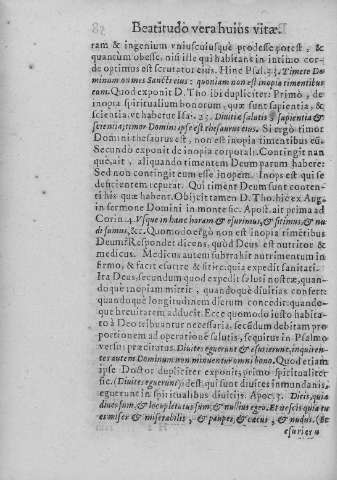 Beatitudo vera huius vitæ.
ram & ingenium vniuscuiusque prodesse potest, &
quantum obesse, nisi ille qui habitans in intimo cor-
de optimus est scrutator eius. Hinc Psal. 33. Timete Do-
minum omnes Sancti eius: quoniam non est inopia timentibus
eum. Quod exponit D. Tho. ibi dupliciter: Primò, de
inopia spiritualium bonorum, quæ sunt sapientia, &
scientia, vt habetur Isa. 33. Diuitiæ salutis sapientia &
scientia; timor Domini ipse est thesaurus eius. Si ergò timor
Domini thesaurus est, non est inopia timentibus eũ.
Secundò exponit de inopia corporali. Contingit nan
què, ait, aliquando timentem Deum parum habere:
Sed non contingit eum esse inopem. Inops est qui se
deficientem reputat. Qui timent Deum sunt conten-
ti his quæ habent. Obijcit tamen D. Tho. hic ex Aug.
in sermone Domini in monte sic. Apost. ait prima ad
Corin. 4. Vsque in hanc horam & esurimus, & sitimus, & nu
di sumus, &c. Quomodo ergò non est inopia timētibus
Deum? Respondet dicens, quòd Deus est nutritor &
medicus. Medicus autem subtrahit nutrimentum in
firmo, & facit esurire & sitire, quia expedit sanitati.
Ita Deus, secundum quod expedit saluti nostræ, quan-
doque inopiam mittit, quandoque diuitias confert:
quandoque longitudinem dierum concedit: quando-
que breuitatem adducit. Ecce quomodo iusto habita-
to à Deo tribuantur necessaria, secūdum debitam pro
portionem ad operationē salutis, sequitur in Psalmo
versu præcitato. Diuites eguerunt & esurierunt, inquiren-
tes autem Dominum non minuentur omni bono. Quod etiam
ipse Doctor dupliciter exponit; primò spiritualiter
sic. (Diuites eguerunt) idest, qui sunt diuites in mundanis,
eguerunt in spiritualibus diuitijs. Apoc. 3. Dicis, quia
diues sum, & locupletatus sum, & nullius egeo. Et nescis quia tu
es miser & miserabilis, & pauper, & cæcus, & nudus. (Et
esurieru